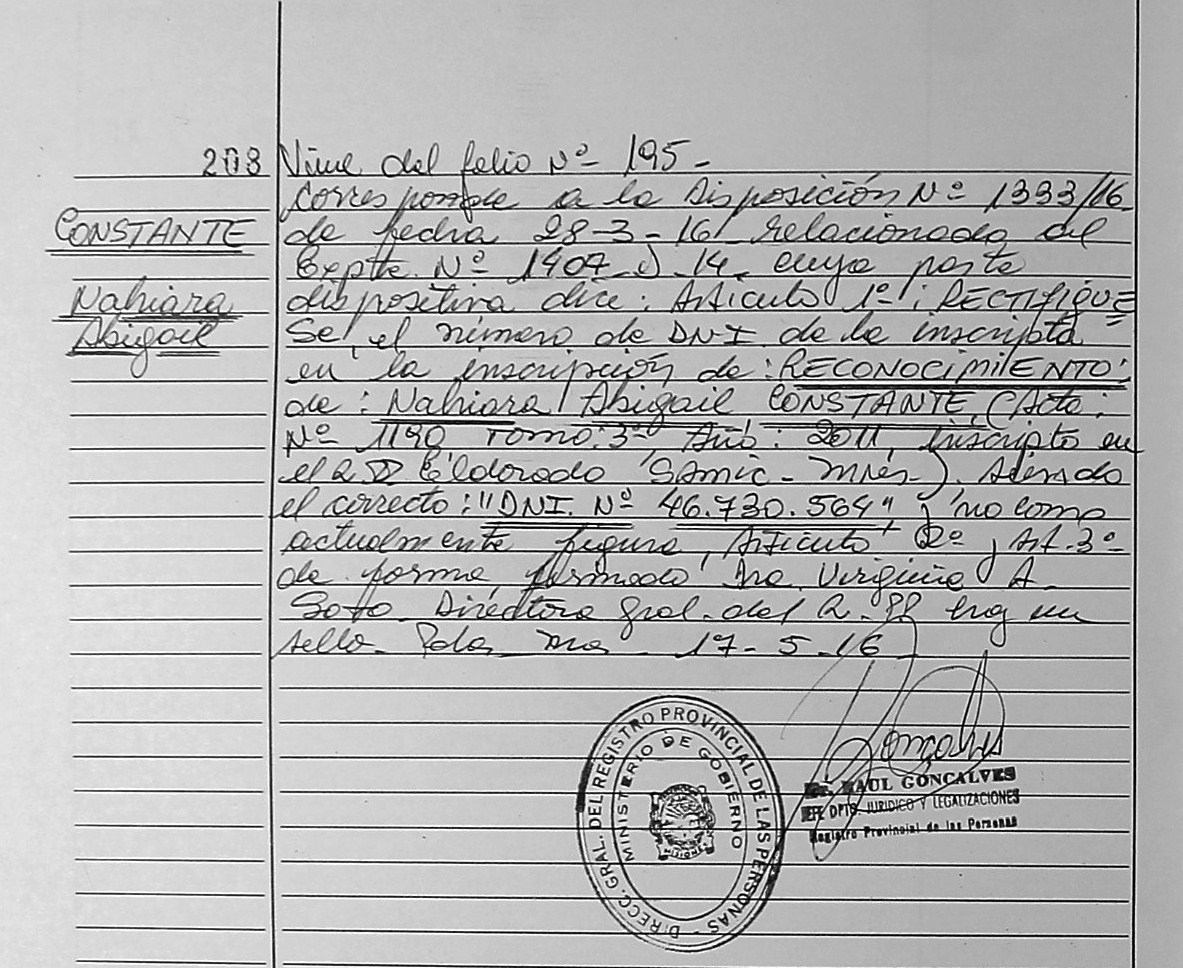 208 Viene del folio Nº 195-
Corresponde a la Disposición Nº 1333/16
CONSTANTE
de fecha 28-3-16 relacionada al
Expte. Nº 1407-J-14- cuya parte
Nahiara
dispositiva dice: Artículo 1º: RECTIFIQUE=
Abigail
Se, el número de DNI de la inscripta
en la inscripción de: RECONOCIMIENTO:
de: Nahiara Abigail CONSTANTE, (Acta:
Nº 1190 Tomo: 3º Año: 2011, inscripto en
el R.PP Eldorado SAMIC- Mnes-). Siendo
el correcto: "DNI. Nº 46.730.564" y no como
actualmente figura, Artículo 2º y Art. 3º-
de forma, firmado Dra Virginia A.
Soto Directora Gral. del R.PP hay un
sello- Pdas Mnes- 17-5-16
DIRECC. GRAL. DEL REGISTRO PROVINCIAL DE LAS PERSONAS
MINISTERIO DE GOBIERNO
MISIONES
Goncalves
Dr. RAUL GONCALVES
JEFE DPTO. JURIDICO Y LEGALIZACIONES
Registro Provincial de las Personas